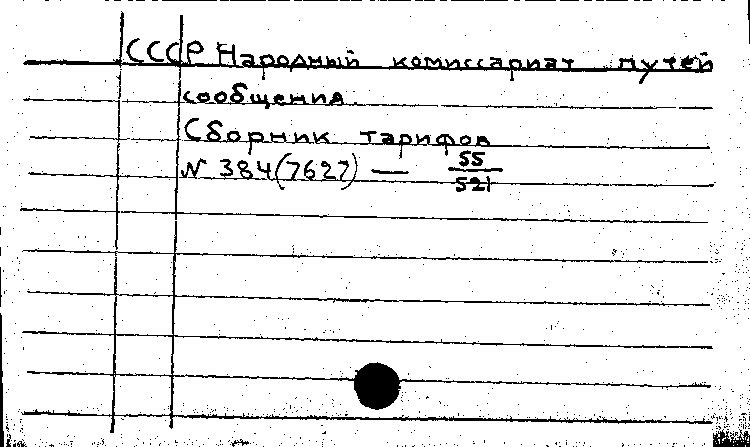 СССР Народный комиссариат путей
сообщения.
Сборник тарифов
№ 384(7627) — 55/521